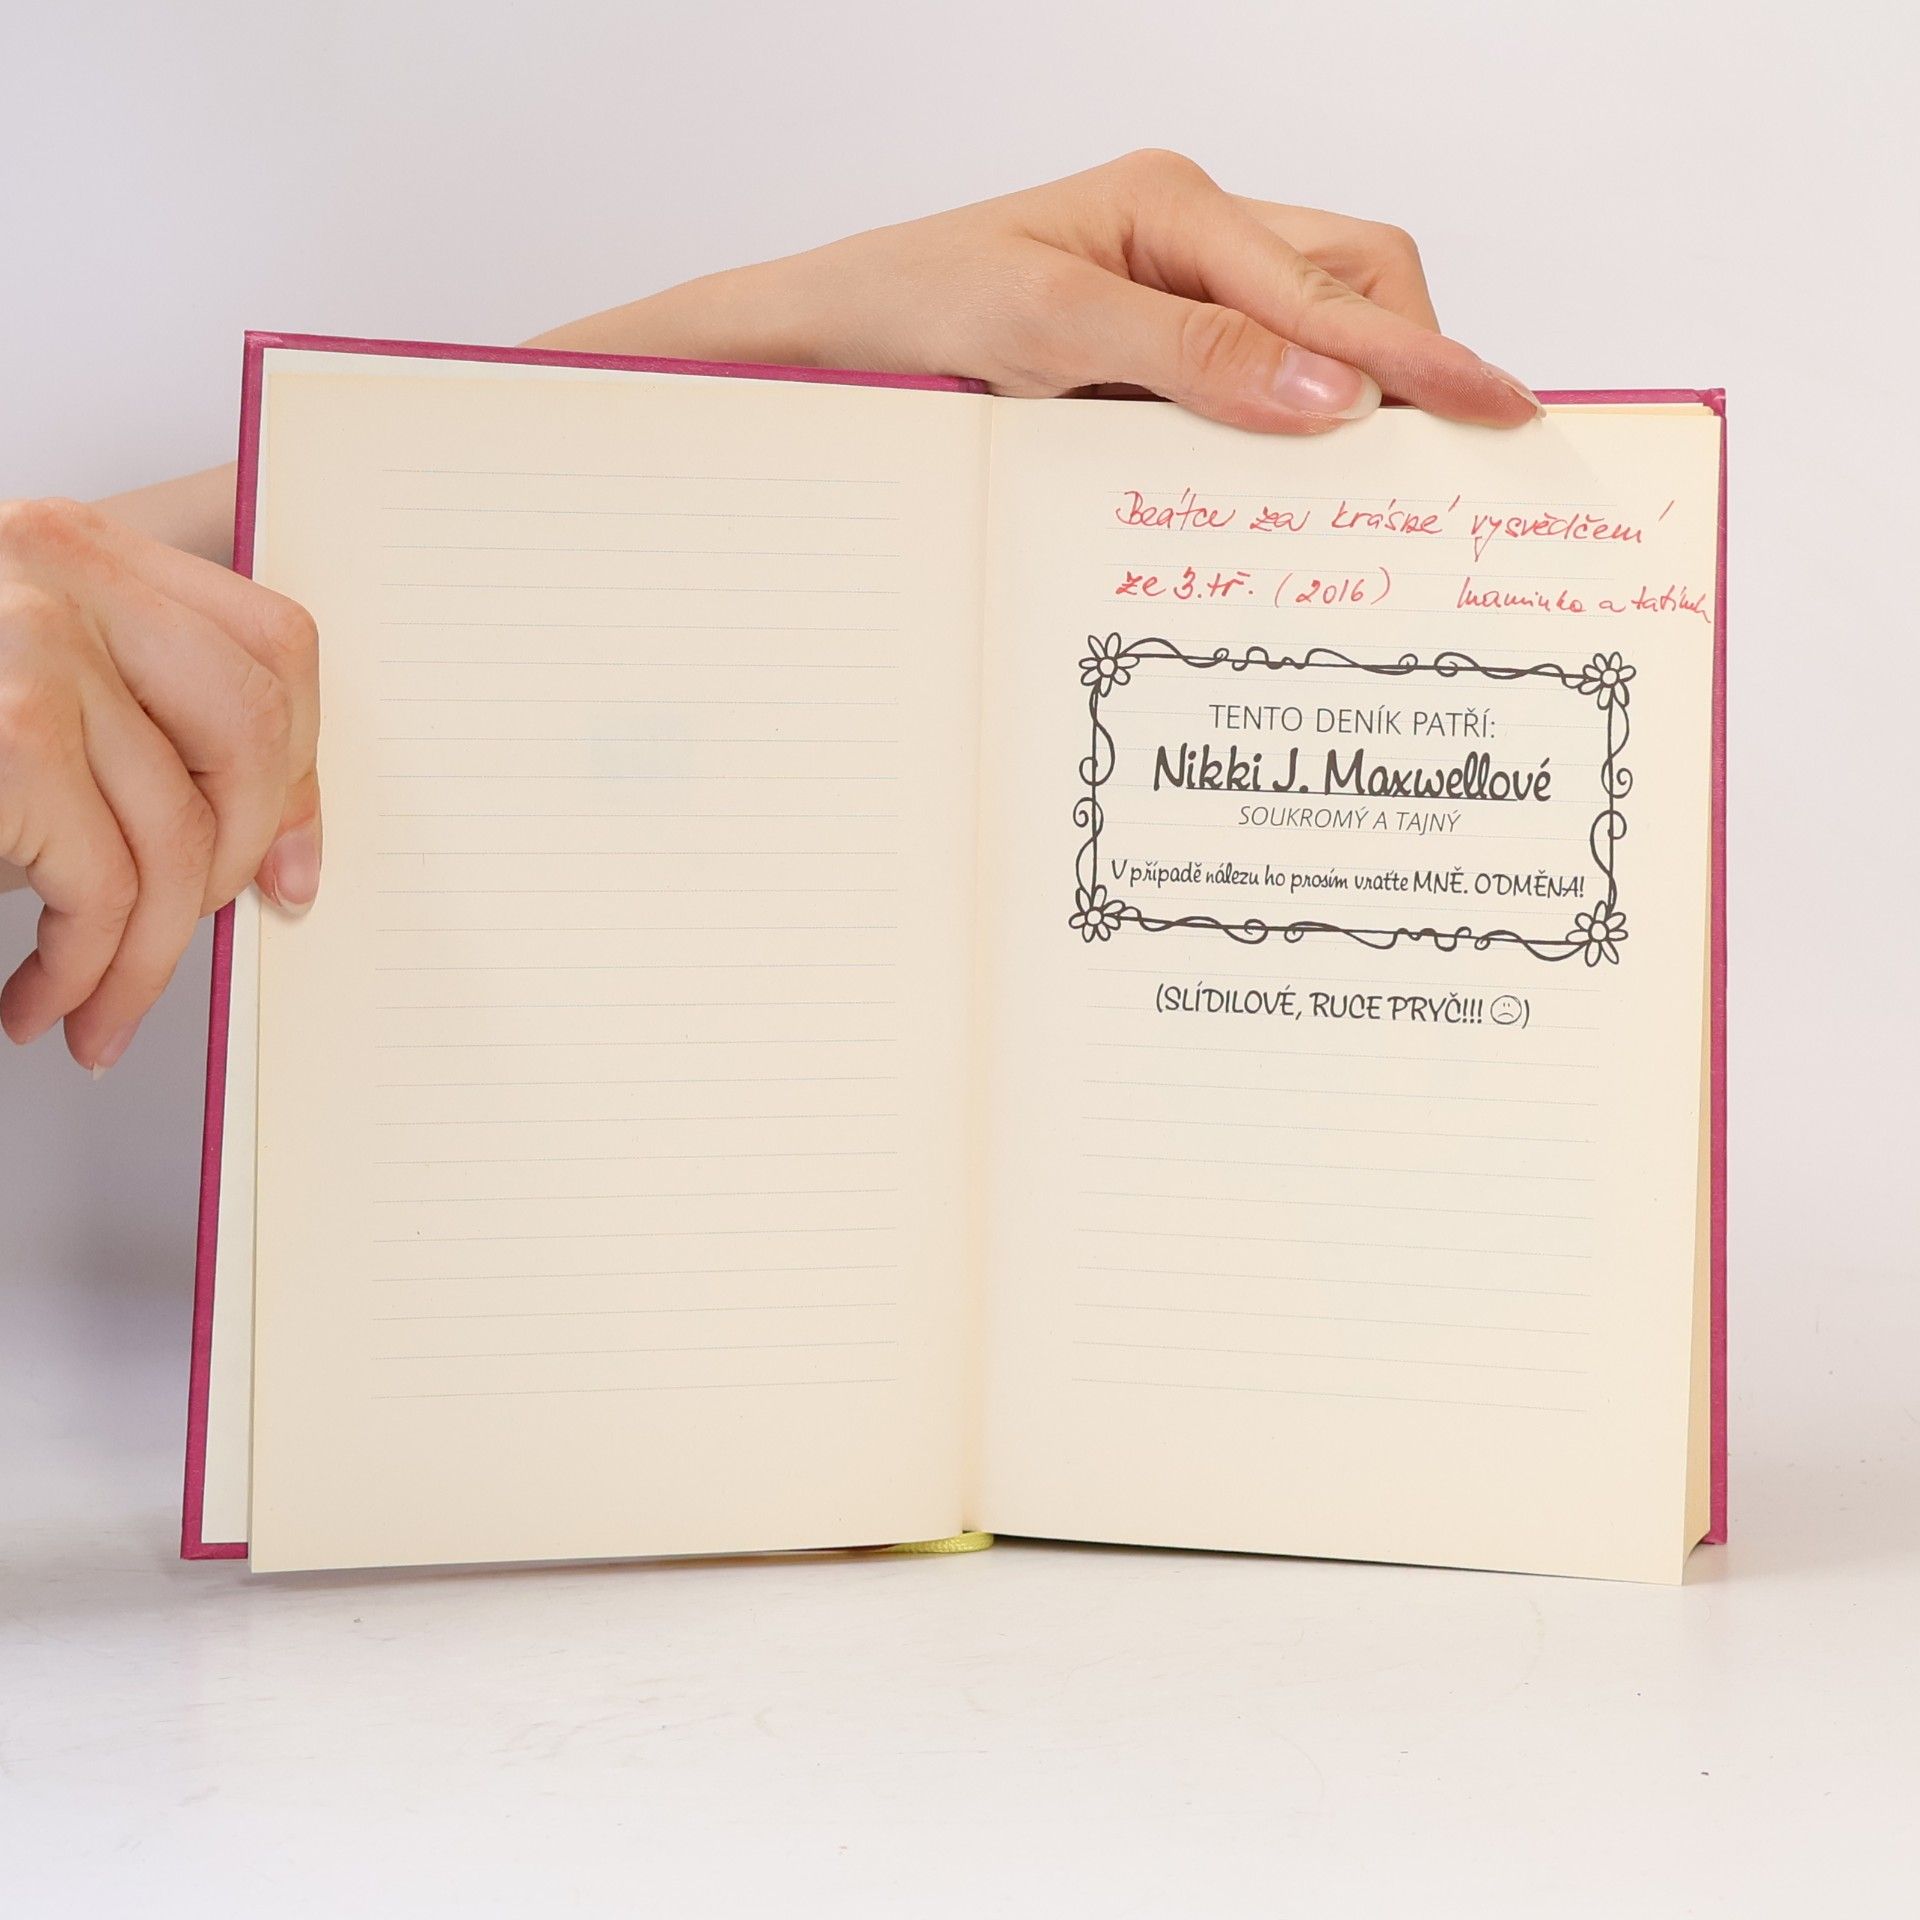 Beátce za krásné vysvědčení
ze 3. tř. (2016) maminka a tatínek
TENTO DENÍK PATŘÍ:
Nikki J. Maxwellové
SOUKROMÝ A TAJNÝ
V případě nálezu ho prosím vraťte MNĚ. ODMĚNA!
(SLÍDILOVÉ, RUCE PRYČ!!! ☹)